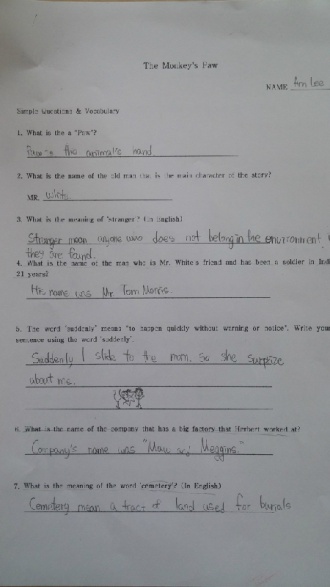 The Monkey's Paw
NAME Ann Lee
Sample Questions & Vocabulary
1. What is the a "Paw"?
Paw is the animal's hand.
2. What is the name of the old man that is the main character of the story?
MR. White
3. What is the meaning of 'stranger'? (in English)
Stranger mean anyone who does not belong in the environment
they are found.
4. What is the name of the man who is Mr. White's friend and has been a soldier in
21 years?
His name was Mr. Tom Morris.
5. The word 'suddenly' means "to happen quickly without warning or notice". Write your
sentence using the word 'suddenly'.
Suddenly I slide to the mom, so she surpize
about me.
6. What is the name of the company that has a big factory that Herbert worked at?
Company's name was "Maw and Meggins"
7. What is the meaning of the word 'cemetery'? (In English)
Cemetery mean a tract of land used for burials